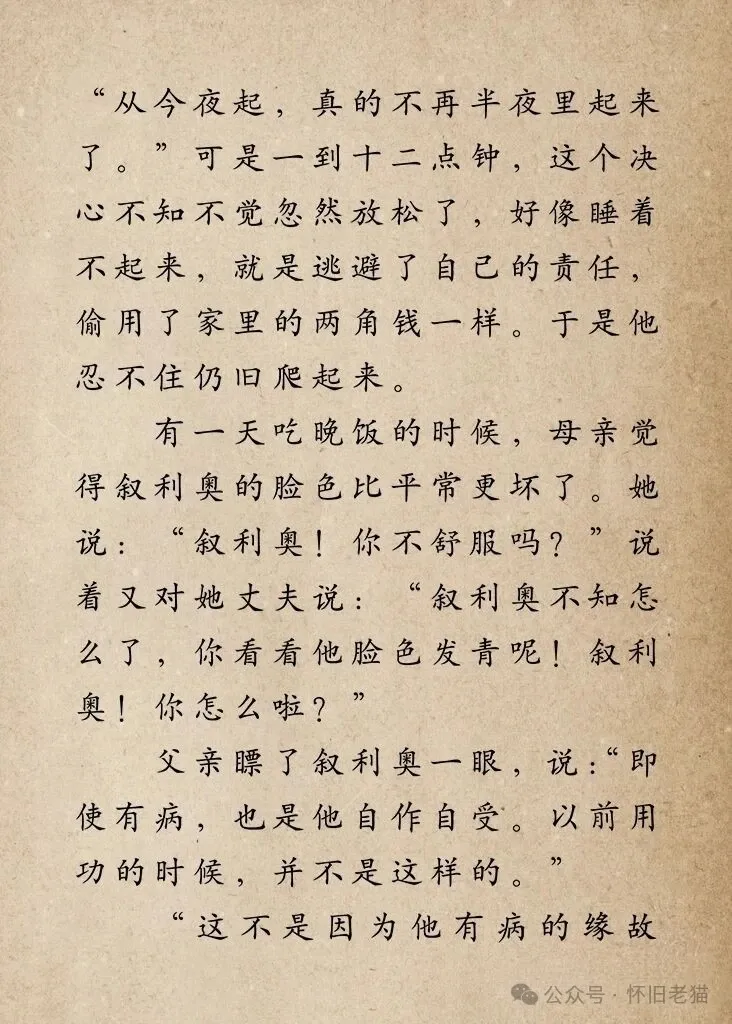 “从今夜起，真的不再半夜里起来
了。”可是一到十二点钟，这个决
心不知不觉忽然放松了，好像睡着
不起来，就是逃避了自己的责任，
偷用了家里的两角钱一样。于是他
忍不住仍旧爬起来。
有一天吃晚饭的时候，母亲觉
得叙利奥的脸色比平常更坏了。她
说：“叙利奥！你不舒服吗？”说
着又对她丈夫说：“叙利奥不知怎
么了，你看看他脸色发青呢！叙利
奥！你怎么啦？”
父亲瞟了叙利奥一眼，说：“即
使有病，也是他自作自受。以前用
功的时候，并不是这样的。”
“这不是因为他有病的缘故
公众号·怀旧老猫